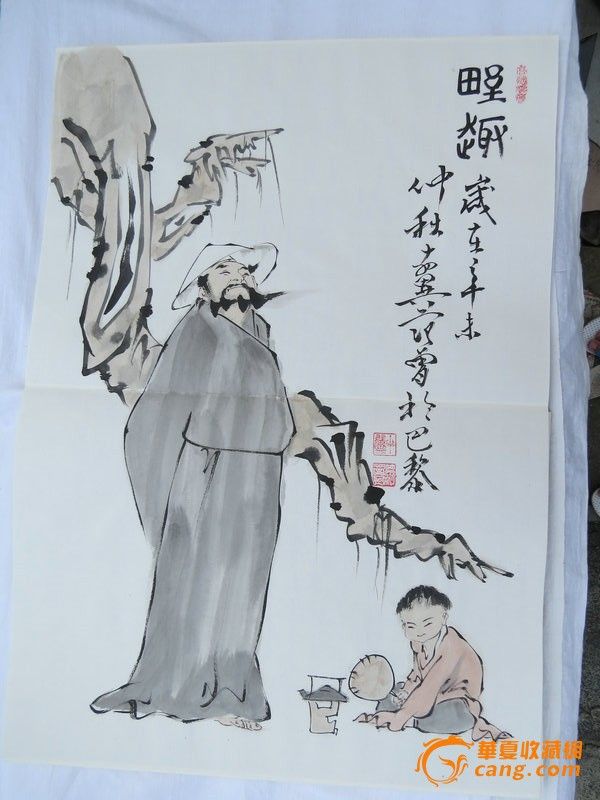 野趣
歲在辛未
仲秋十翼范曾於巴黎
華夏收藏網
cang.com